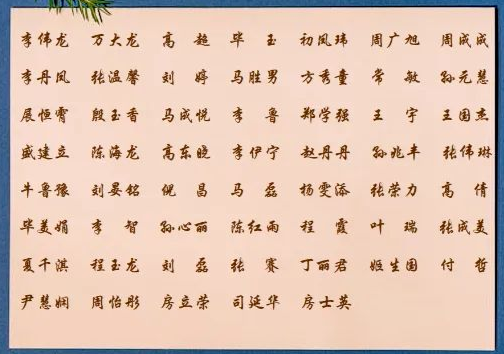 李伟龙 万大龙 高超 毕玉 初凤玮 周广旭 周成成
李丹凤 张温馨 刘婷 马胜男 方秀童 常敏 孙元慧
展恒霄 殷玉香 马成悦 李鲁 郑学强 王宇 王国杰
盛建立 陈海龙 高东晓 李伊宁 赵丹丹 孙兆丰 张伟琳
牛鲁豫 刘晏铭 倪昌 马磊 杨雯添 张荣力 高倩
毕美娟 李智 孙心丽 陈红雨 程霞 叶瑞 张成美
夏千淇 程玉龙 刘磊 张赛 丁丽君 姬生国 付哲
尹慧娴 周怡彤 房立荣 司延华 房士英